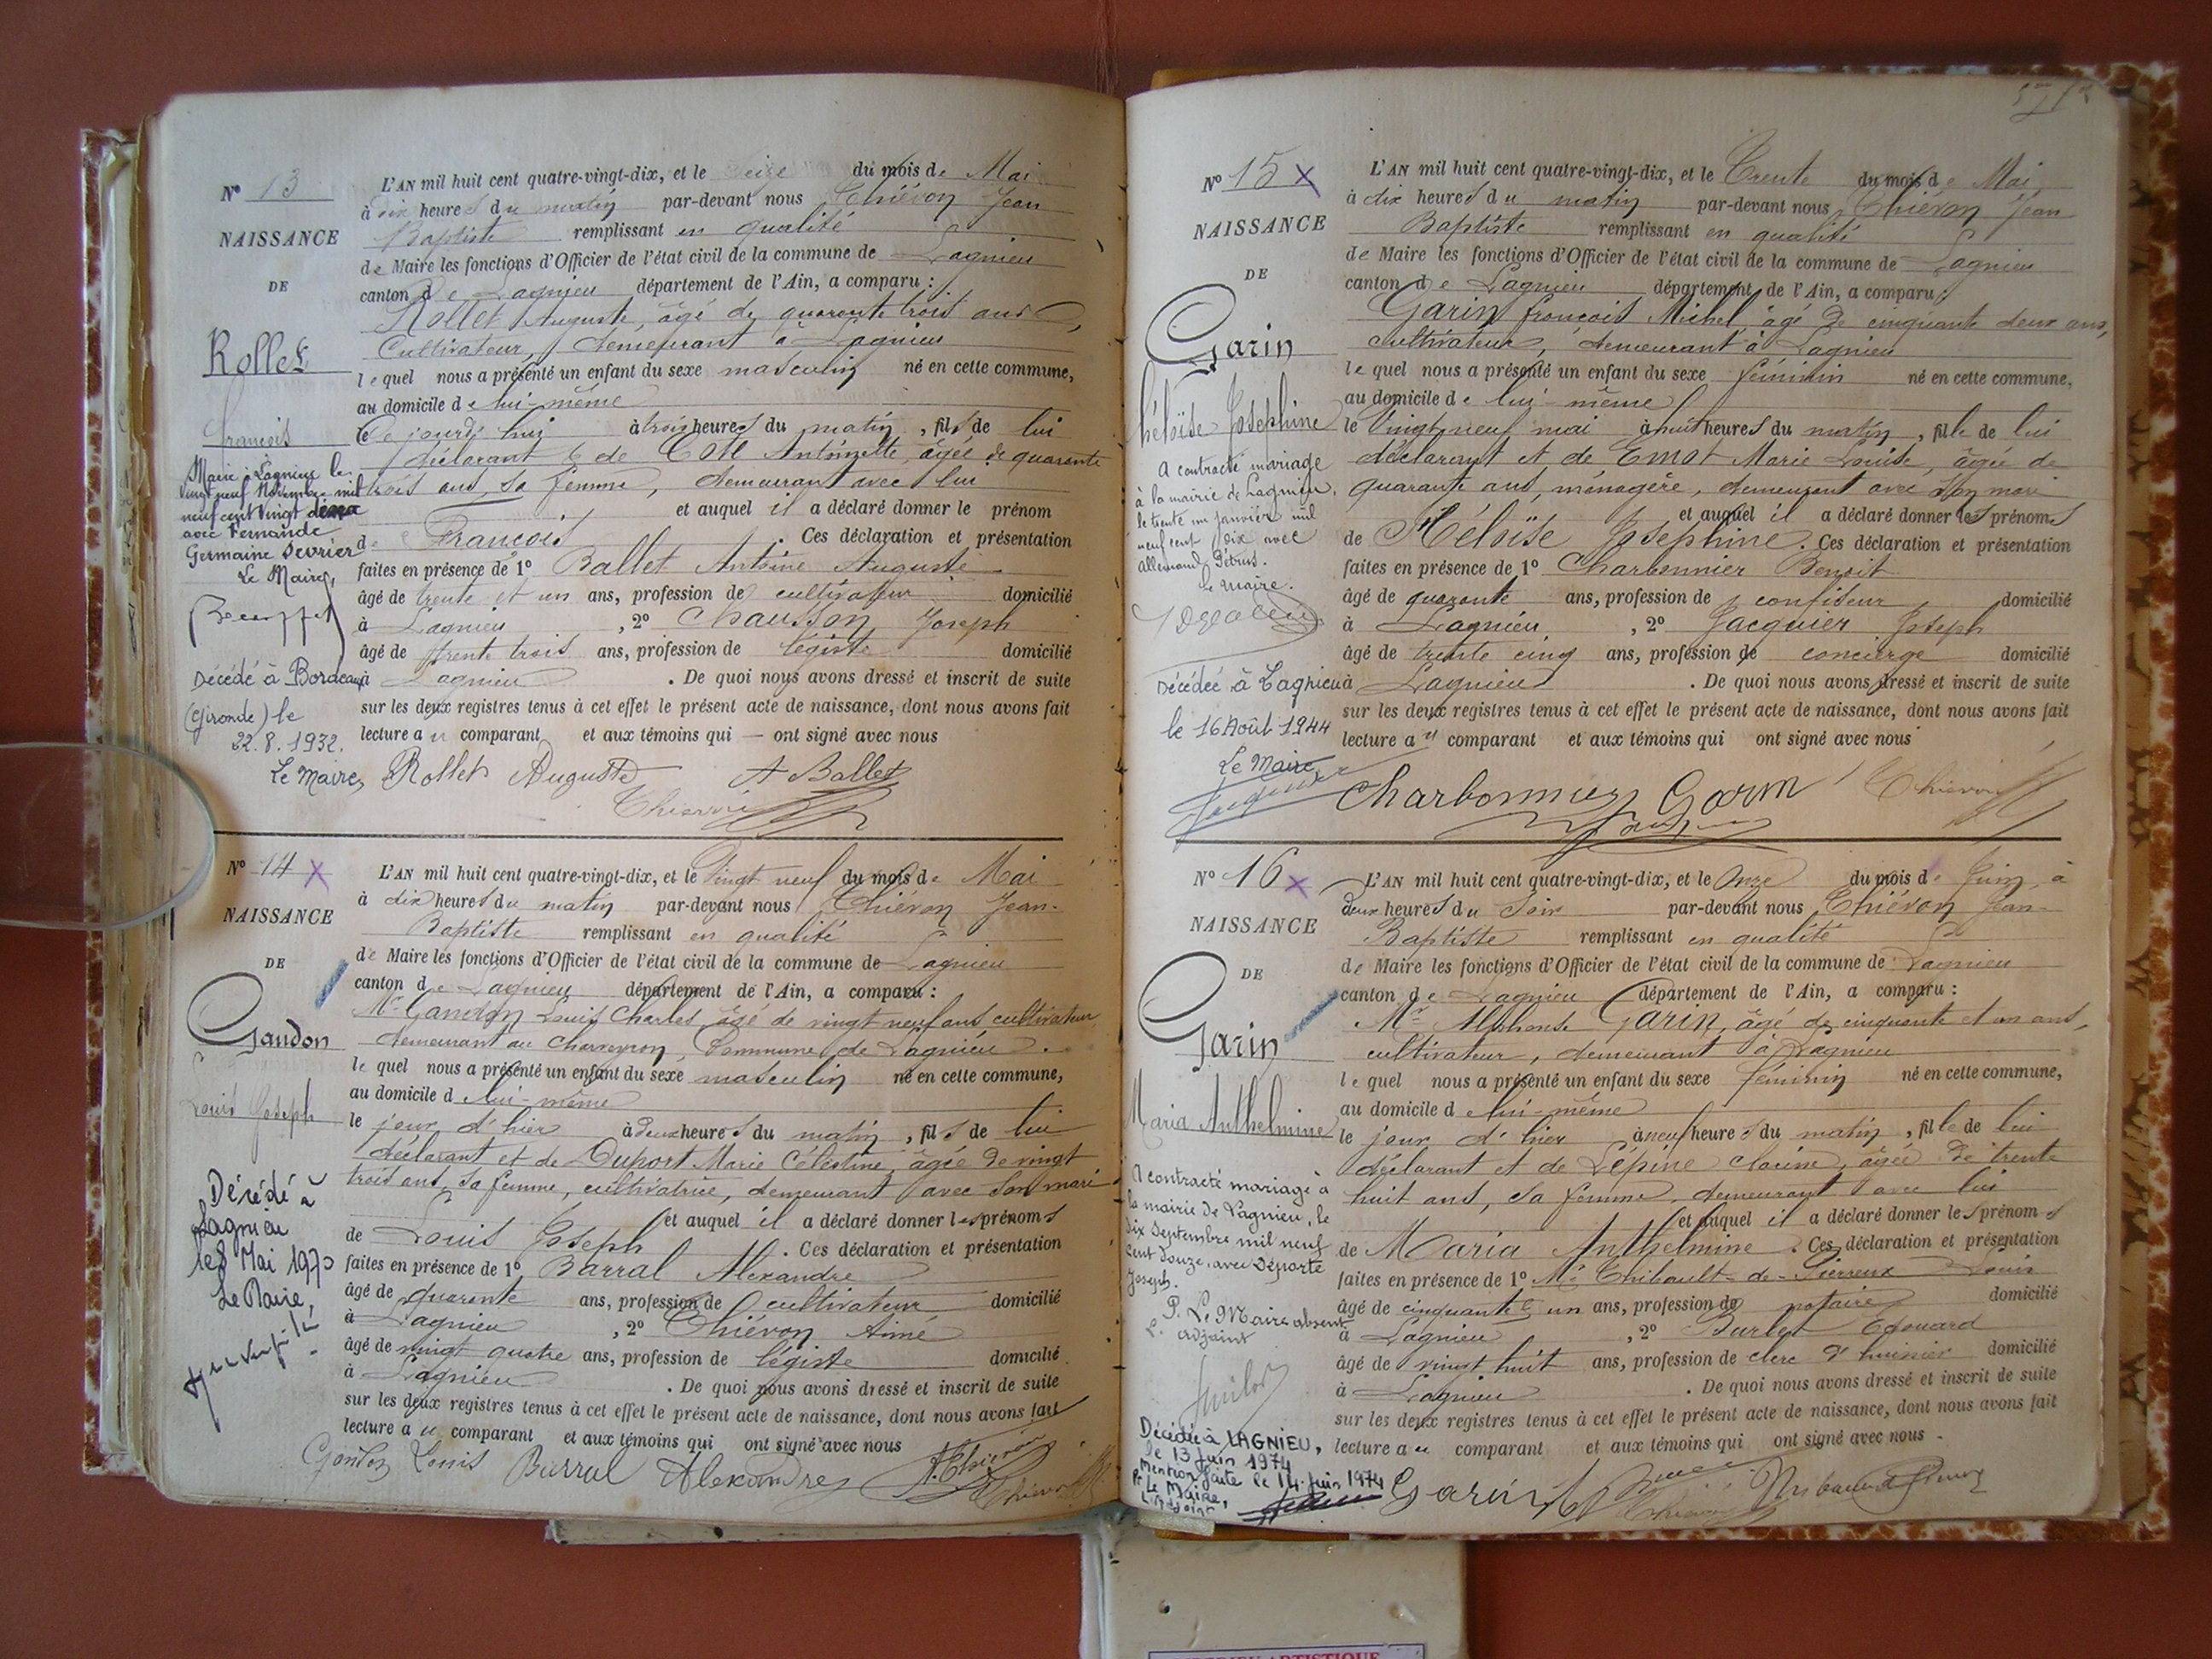 N° 13
NAISSANCE
DE
Rollet
François
Marié à Lagnieu le
vingt neuf Novembre mil
neuf cent vingt deux
avec Fernande
Germaine Devrier
Le Maire,
Décédé à Bordeaux
(Gironde) le
22.8.1932.
Le Maire,
L'AN mil huit cent quatre-vingt-dix, et le seize du mois de Mai
à dix heures du matin par-devant nous Thiévon Jean
Baptiste remplissant en qualité
de Maire les fonctions d'Officier de l'état civil de la commune de Lagnieu
canton de Lagnieu département de l'Ain, a comparu :
Rollet Auguste, âgé de quarante trois ans,
Cultivateur, demeurant à Lagnieu
lequel nous a présenté un enfant du sexe masculin né en cette commune,
au domicile de lui-même
le Ce jourd'hui à trois heures du matin, fils de lui
déclarant & de Cote Antoinette, âgée de quarante
trois ans, sa femme, demeurant avec lui
et auquel il a déclaré donner le prénom
de François. Ces déclaration et présentation
faites en présence de 1° Ballet Antoine Auguste
âgé de trente et un ans, profession de cultivateur domicilié
à Lagnieu, 2° Chausson Joseph
âgé de trente trois ans, profession de légiste domicilié
à Lagnieu. De quoi nous avons dressé et inscrit de suite
sur les deux registres tenus à cet effet le présent acte de naissance, dont nous avons fait
lecture au comparant et aux témoins qui — ont signé avec nous
Rollet Auguste A Ballet
Thiévon
N° 14 X
NAISSANCE
DE
Gandon
Louis Joseph
Décédé à
Lagnieu
le 8 Mai 1970
Le Maire,
L'AN mil huit cent quatre-vingt-dix, et le Vingt neuf du mois de Mai
à dix heures du matin par-devant nous Thiévon Jean-
Baptiste remplissant en qualité
de Maire les fonctions d'Officier de l'état civil de la commune de Lagnieu
canton de Lagnieu département de l'Ain, a comparu :
Mr Gandon Louis Charles âgé de vingt neuf ans cultivateur
demeurant au Charveyron, Commune de Lagnieu.
lequel nous a présenté un enfant du sexe masculin né en cette commune,
au domicile de lui-même
le jour d'hier à deux heures du matin, fils de lui
déclarant et de Duport Marie Célestine, âgée de vingt
trois ans, sa femme, cultivatrice, demeurant avec son mari
et auquel il a déclaré donner les prénoms
de Louis Joseph. Ces déclaration et présentation
faites en présence de 1° Barral Alexandre
âgé de quarante ans, profession de cultivateur domicilié
à Lagnieu, 2° Thiévon Aimé
âgé de vingt quatre ans, profession de légiste domicilié
à Lagnieu. De quoi nous avons dressé et inscrit de suite
sur les deux registres tenus à cet effet le présent acte de naissance, dont nous avons fait
lecture au comparant et aux témoins qui ont signé avec nous
Gandon Louis Barral Alexandre A. Thiévon
Thiévon
N° 15 X
NAISSANCE
DE
Garin
Héloïse Joséphine
A contracté mariage
à la mairie de Lagnieu,
le trente un janvier mil
neuf cent dix avec
Allemand Pétrus.
Le maire.
Décédée à Lagnieu
le 16 Août 1944
Le Maire
L'AN mil huit cent quatre-vingt-dix, et le Trente du mois de Mai
à dix heures du matin par-devant nous Thiévon Jean
Baptiste remplissant en qualité
de Maire les fonctions d'Officier de l'état civil de la commune de Lagnieu
canton de Lagnieu département de l'Ain, a comparu :
Garin François Michel âgé de cinquante deux ans,
cultivateur, demeurant à Lagnieu
lequel nous a présenté un enfant du sexe féminin né en cette commune,
au domicile de lui-même
le Vingt neuf mai à huit heures du matin, fille de lui
déclarant et de Emot Marie Louise, âgée de
quarante ans, ménagère, demeurant avec son mari
et auquel il a déclaré donner les prénoms
de Héloïse Joséphine. Ces déclaration et présentation
faites en présence de 1° Charbonnier Benoit
âgé de quarante ans, profession de confiseur domicilié
à Lagnieu, 2° Jacquier Joseph
âgé de trente cinq ans, profession de concierge domicilié
à Lagnieu. De quoi nous avons dressé et inscrit de suite
sur les deux registres tenus à cet effet le présent acte de naissance, dont nous avons fait
lecture au comparant et aux témoins qui ont signé avec nous
Charbonnier Garin Thiévon
N° 16 X
NAISSANCE
DE
Garin
Maria Anthelmine
A contracté mariage à
la mairie de Lagnieu, le
dix Septembre mil neuf
cent douze, avec Déporte
Joseph.
P. Le Maire absent
L. adjoint
Décédée à LAGNIEU,
le 13 Juin 1974
Mention faite le 14 Juin 1974
Pr Le Maire,
L'Adjoint
L'AN mil huit cent quatre-vingt-dix, et le Onze du mois de Juin à
deux heures du soir par-devant nous Thiévon Jean-
Baptiste remplissant en qualité
de Maire les fonctions d'Officier de l'état civil de la commune de Lagnieu
canton de Lagnieu département de l'Ain, a comparu :
Mr Alphonse Garin, âgé de cinquante et un ans,
cultivateur, demeurant à Lagnieu
lequel nous a présenté un enfant du sexe féminin né en cette commune,
au domicile de lui-même
le jour d'hier à neuf heures du matin, fille de lui
déclarant et de Lépine Clarine, âgée de trente
huit ans, sa femme, demeurant avec lui
et auquel il a déclaré donner les prénoms
de Maria Anthelmine. Ces déclaration et présentation
faites en présence de 1° Mr Thibault-de-Pierreux Louis
âgé de cinquante & un ans, profession de notaire domicilié
à Lagnieu, 2° Burlet Edouard
âgé de vingt huit ans, profession de clerc d'huissier domicilié
à Lagnieu. De quoi nous avons dressé et inscrit de suite
sur les deux registres tenus à cet effet le présent acte de naissance, dont nous avons fait
lecture au comparant et aux témoins qui ont signé avec nous.
Garin
Thiévon